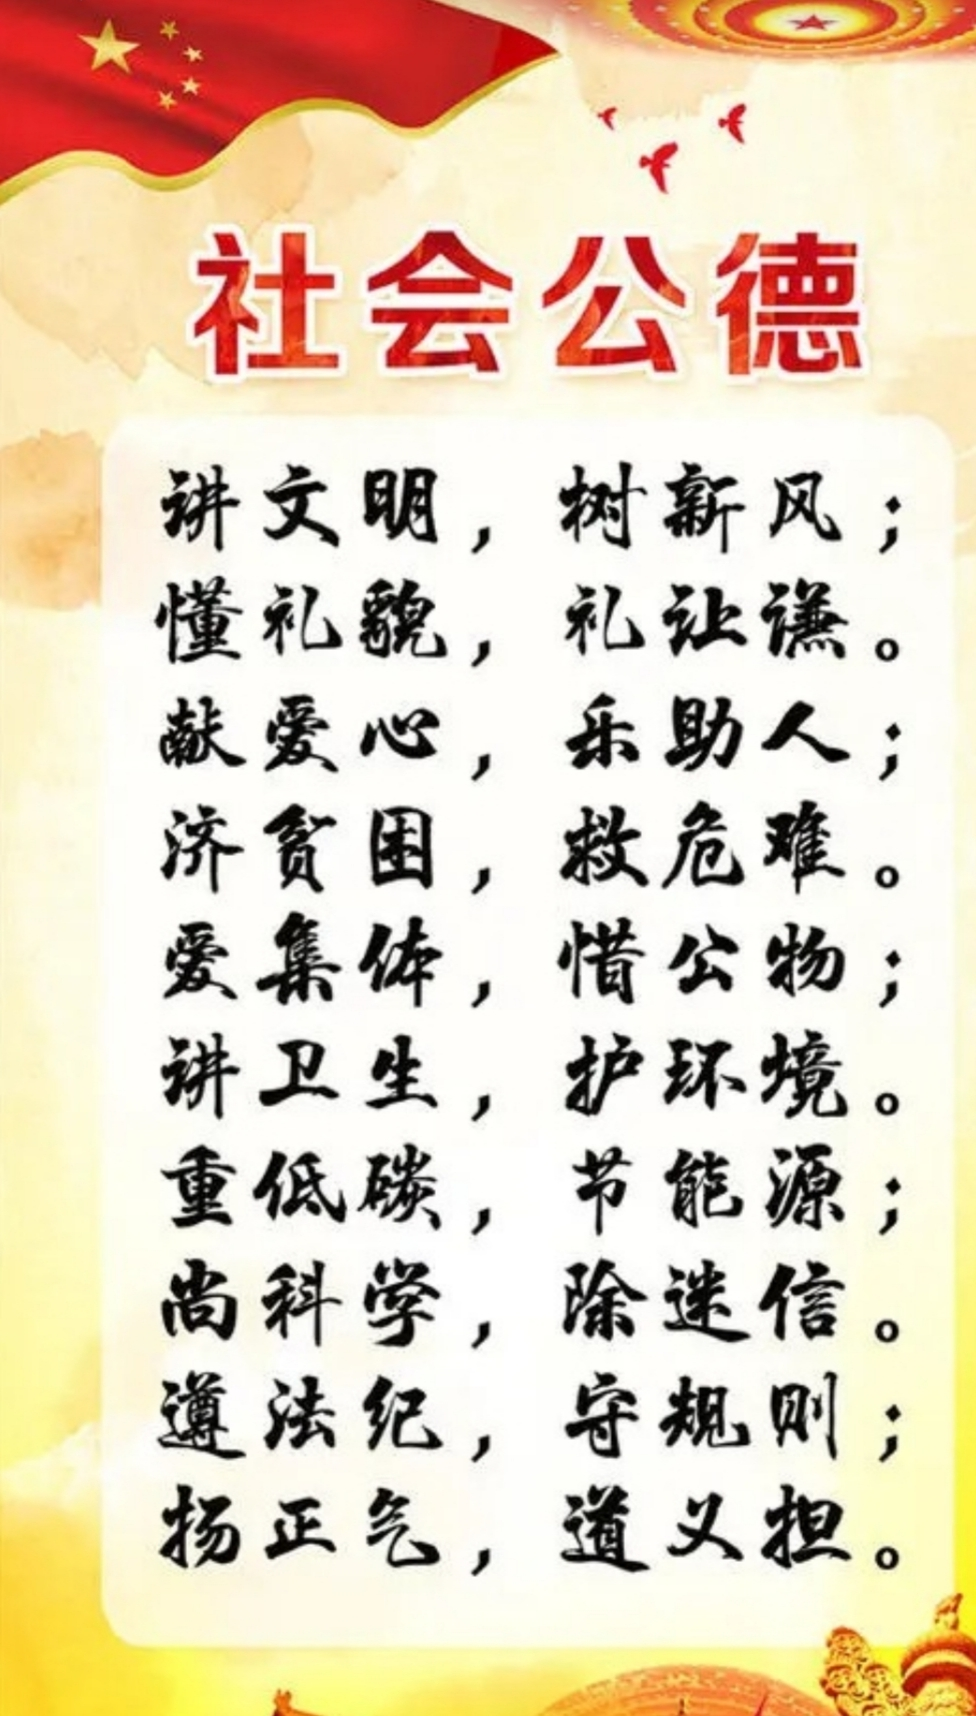 社会公德
讲文明，树新风；
懂礼貌，礼让谦。
献爱心，乐助人；
济贫困，救危难。
爱集体，惜公物；
讲卫生，护环境。
重低碳，节能源；
尚科学，除迷信。
遵法纪，守规则；
扬正气，道义担。